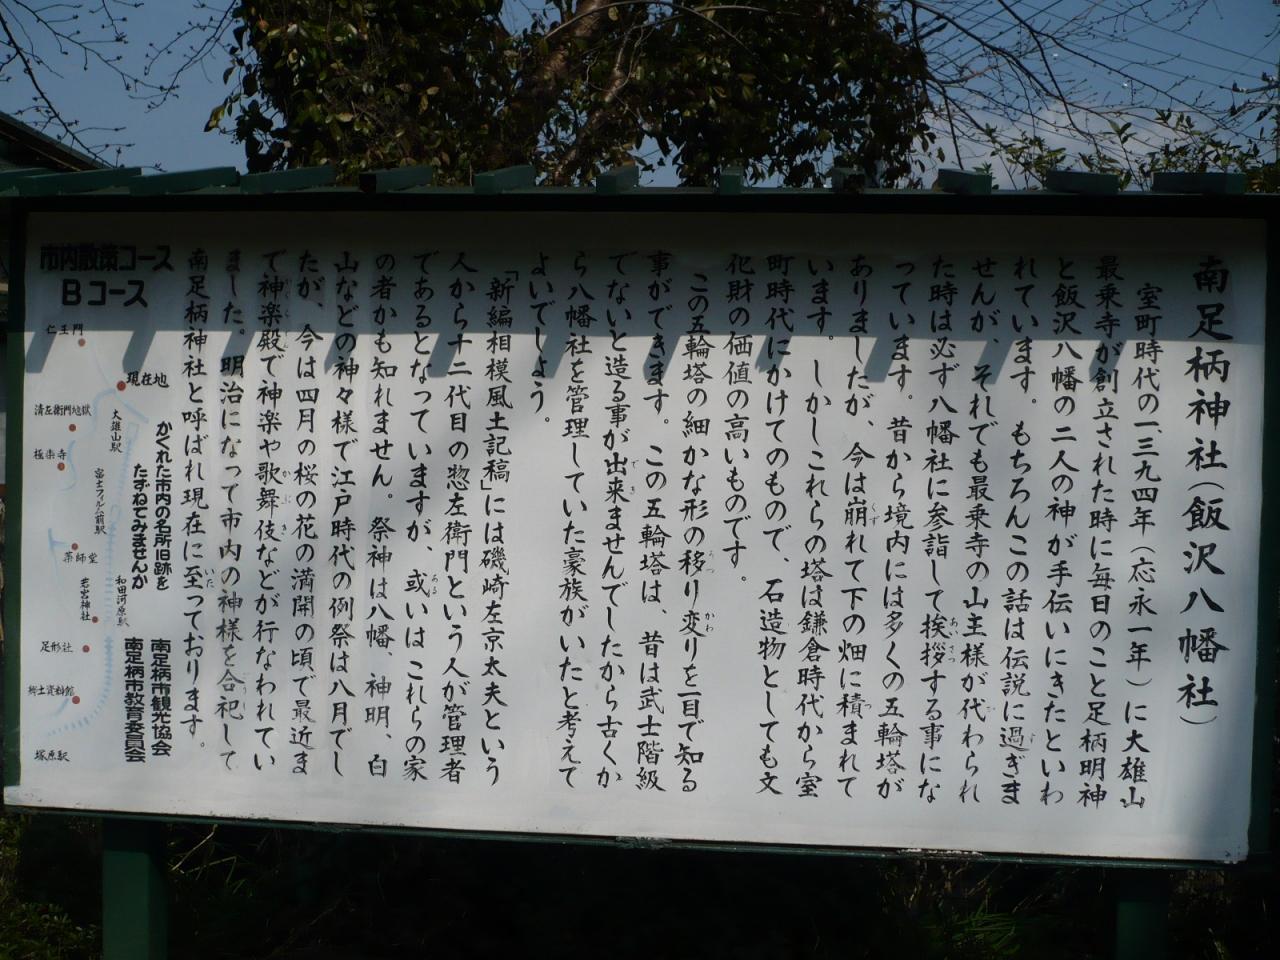 南足柄神社(飯沢八幡社)
室町時代の一、三九四年(応永一年)に大雄山
最乗寺が創立された時に毎日のこと足柄明神
と飯沢八幡の二人の神が手伝いにきたといわ
れています。もちろんこの話は伝説に過ぎま
せんが、それでも最乗寺の山主様が代わられ
た時は必ず八幡社に参詣して挨拶する事にな
っています。昔から境内には多くの五輪塔が
ありましたが、今は崩れて下の畑に積まれて
います。しかしこれらの塔は鎌倉時代から室
町時代にかけてのもので、石造物としても文
化財の価値の高いものです。
この五輪塔の細かな形の移り変りを一目で知る
事ができます。この五輪塔は、昔は武士階級
でないと造る事が出来ませんでしたから古くか
ら八幡社を管理していた豪族がいたと考えて
よいでしょう。
「新編相模風土記稿」には磯崎左京太夫という
人から十二代目の惣左衛門という人が管理者
であるとなっていますが、或いはこれらの家
の者かも知れません。祭神は八幡 神明、白
山などの神々様で江戸時代の例祭は八月でし
たが、今は四月の桜の花の満開の頃で最近ま
で神楽殿で神楽や歌舞伎などが行なわれてい
ました。明治になって市内の神様を合祀して
南足柄神社と呼ばれ現在に至っております。
市内散策コース
Bコース
仁王門
現在地
清左衛門地獄
大雄山駅
極楽寺
富士フィルム前駅
かくれた市内の名所旧跡を
たずねてみませんか
薬師堂
若宮神社
和田河原駅
足形社
郷土資料館
塚原駅
南足柄市観光協会
南足柄市教育委員会